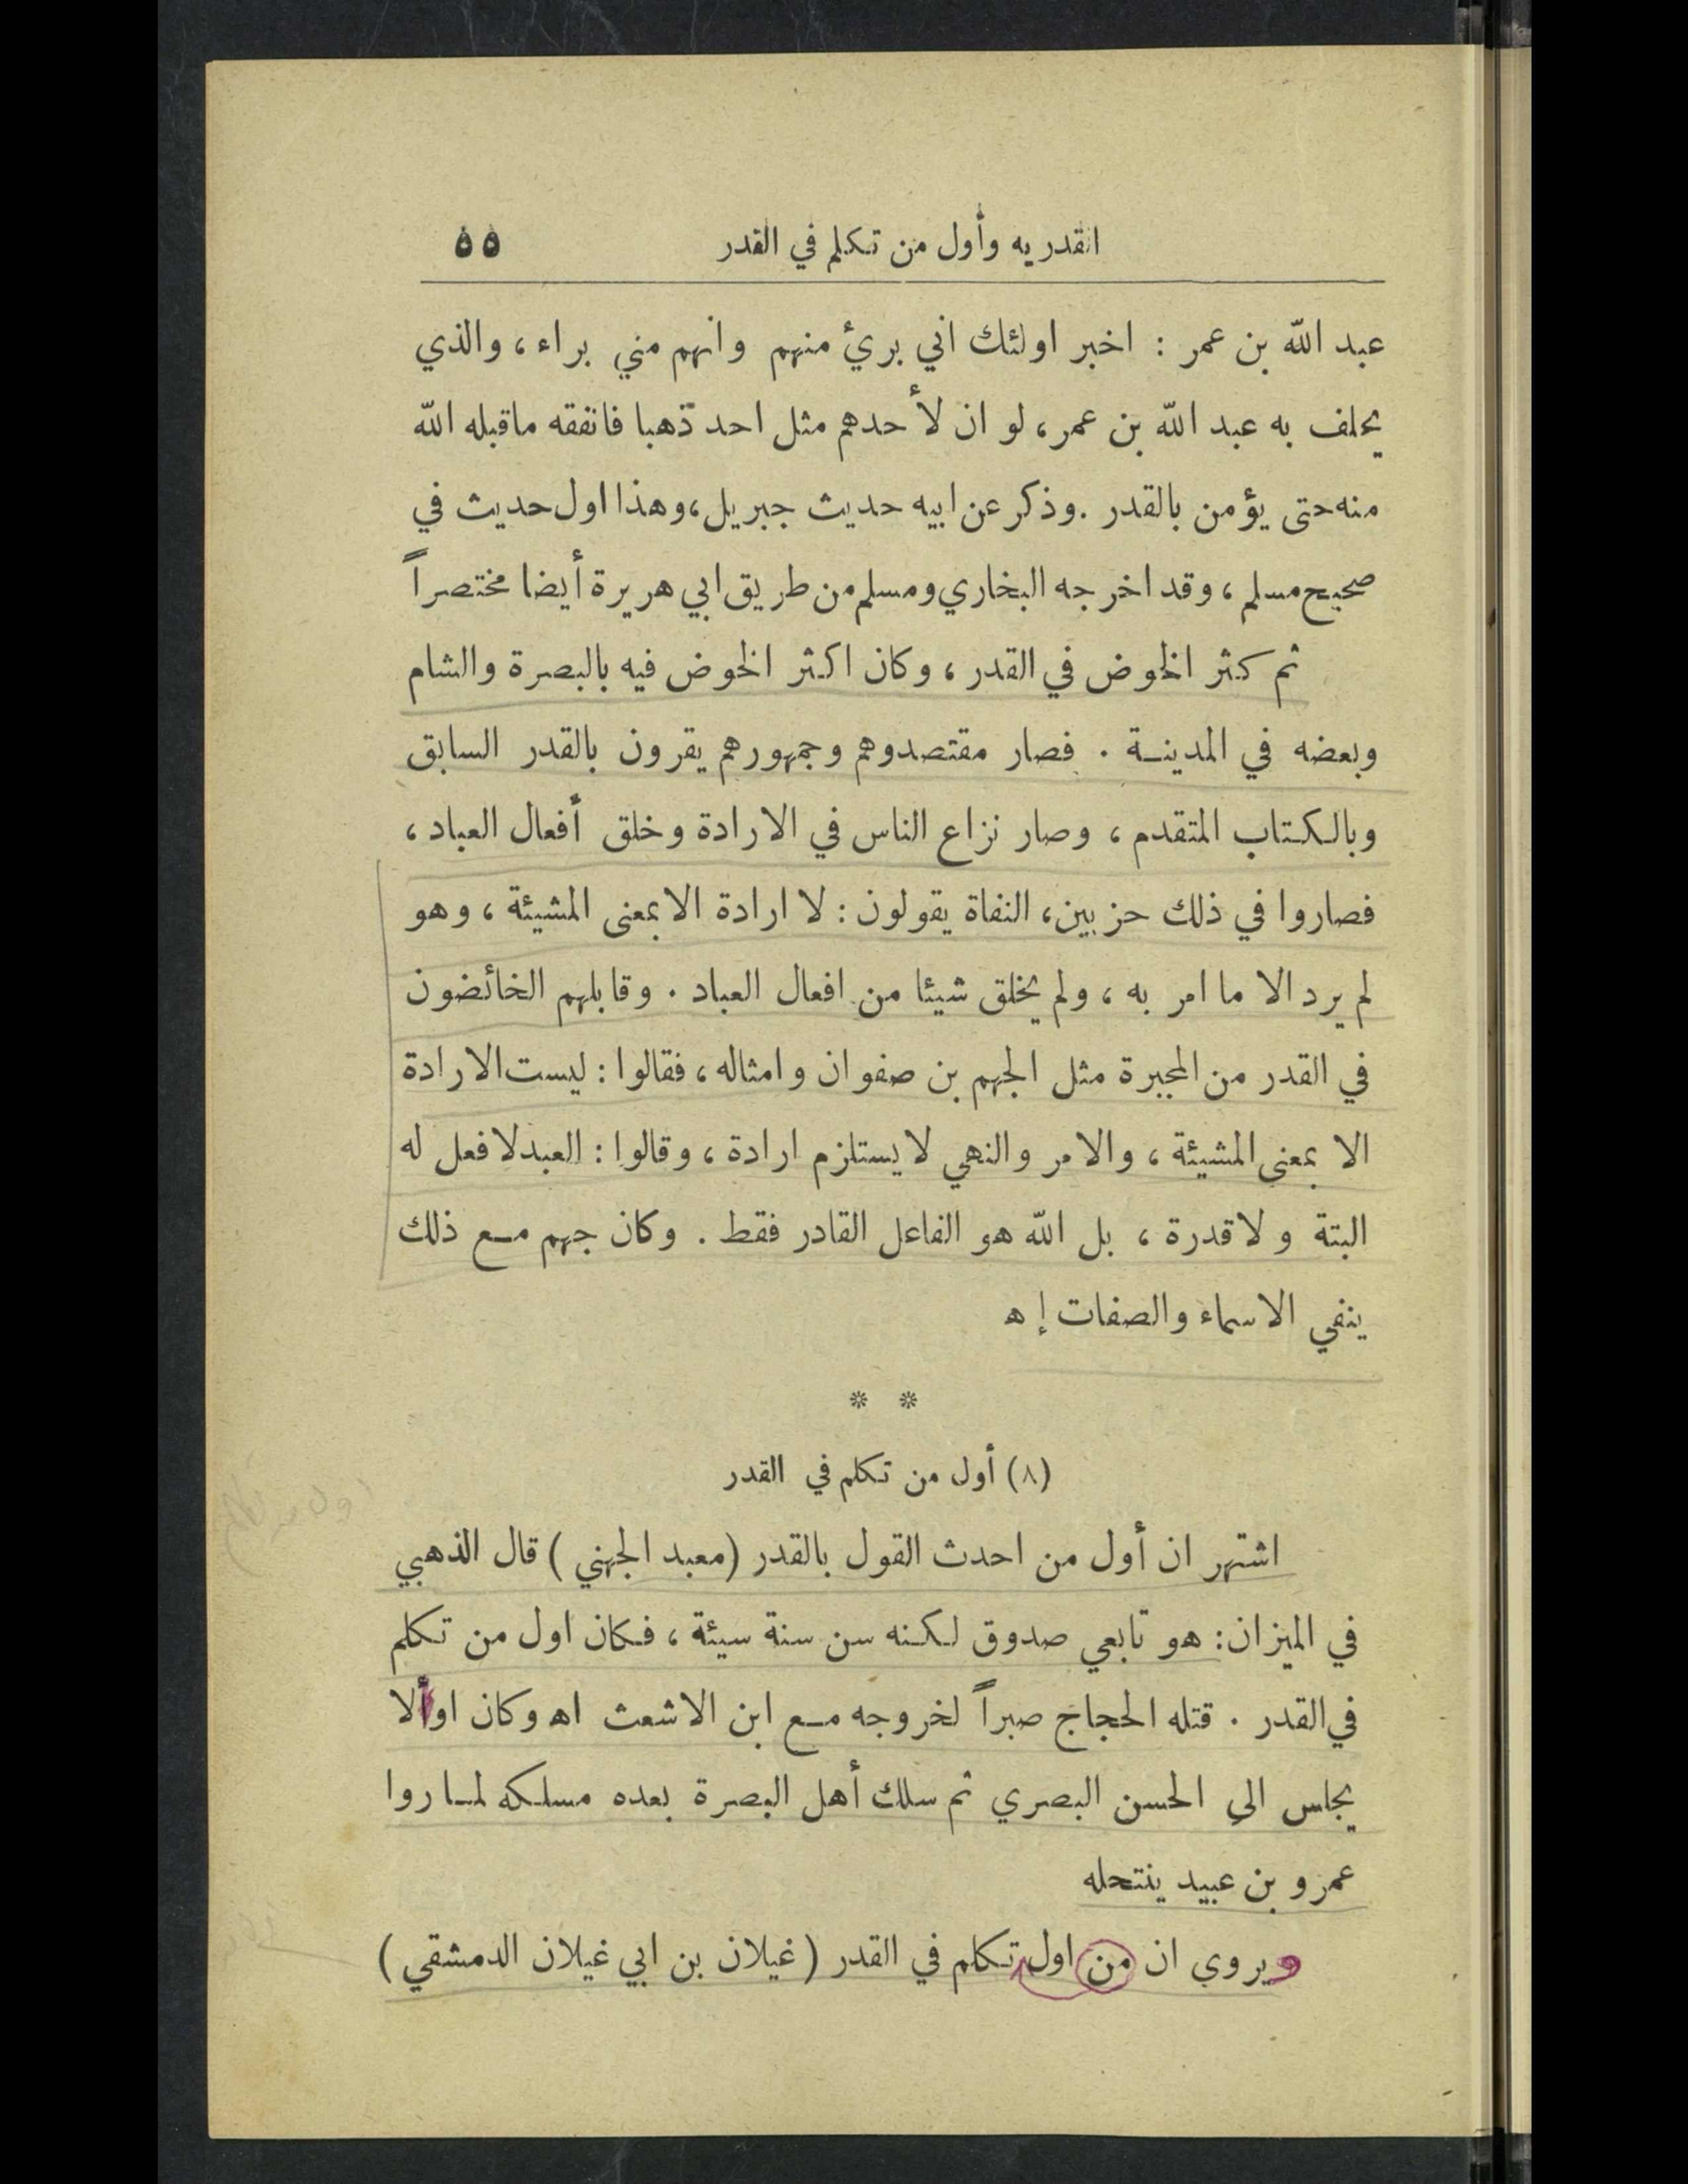 القدريه وأول من تكلم في القدر ٥٥
عبد الله بن عمر : اخبر اولئك اني بريء منهم وانهم مني براء ، والذي
يحلف به عبد الله بن عمر ، لو ان لأحدهم مثل احد ذهبا فانفقه ماقبله الله
منه حتى يؤمن بالقدر . وذكر عن ابيه حديث جبريل ، وهذا اول حديث في
صحيح مسلم ، وقد اخرجه البخاري ومسلم من طريق ابي هريرة أيضا مختصراً
ثم كثر الخوض في القدر ، وكان اكثر الخوض فيه بالبصرة والشام
وبعضه في المدينة . فصار مقتصدوهم وجمهورهم يقرون بالقدر السابق
وبالكتاب المتقدم ، وصار نزاع الناس في الارادة وخلق أفعال العباد ،
فصاروا في ذلك حزبين ، النفاة يقولون : لا ارادة الا بمعنى المشيئة ، وهو
لم يرد الا ما امر به ، ولم يخلق شيئا من افعال العباد . وقابلهم الخائضون
في القدر من المجبرة مثل الجهم بن صفوان وامثاله ، فقالوا : ليست الارادة
الا بمعنى المشيئة ، والامر والنهي لا يستلزم ارادة ، وقالوا : العبد لا فعل له
البتة ولا قدرة ، بل الله هو الفاعل القادر فقط . وكان جهم مع ذلك
ينفي الاسماء والصفات إ ه
* *
(٨) أول من تكلم في القدر
اول من تكلم
اشتهر ان أول من احدث القول بالقدر (معبد الجهني) قال الذهبي
في الميزان : هو تابعي صدوق لكنه سن سنة سيئة ، فكان اول من تكلم
في القدر . قتله الحجاج صبراً لخروجه مع ابن الاشعث اه وكان اوألا
يجلس الى الحسن البصري ثم سلك أهل البصرة بعده مسلكه لما روا
عمرو بن عبيد ينتحله
ويروي ان من اول تكلم في القدر (غيلان بن ابي غيلان الدمشقي)